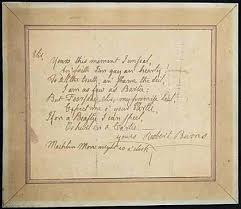 Sir,
Yours this moment I unseal,
And faith I'm gay an' hearty!
To tell the truth an' shame the deil,
I am as fou as Bartie:
But Foorsday, Sir, my promise leal,
Expect me o' your partie,
If on a Beastie I can speel,
Or hurl in a Cartie.
Yours Robert Burns
Machlin Monnight 10 o'clock